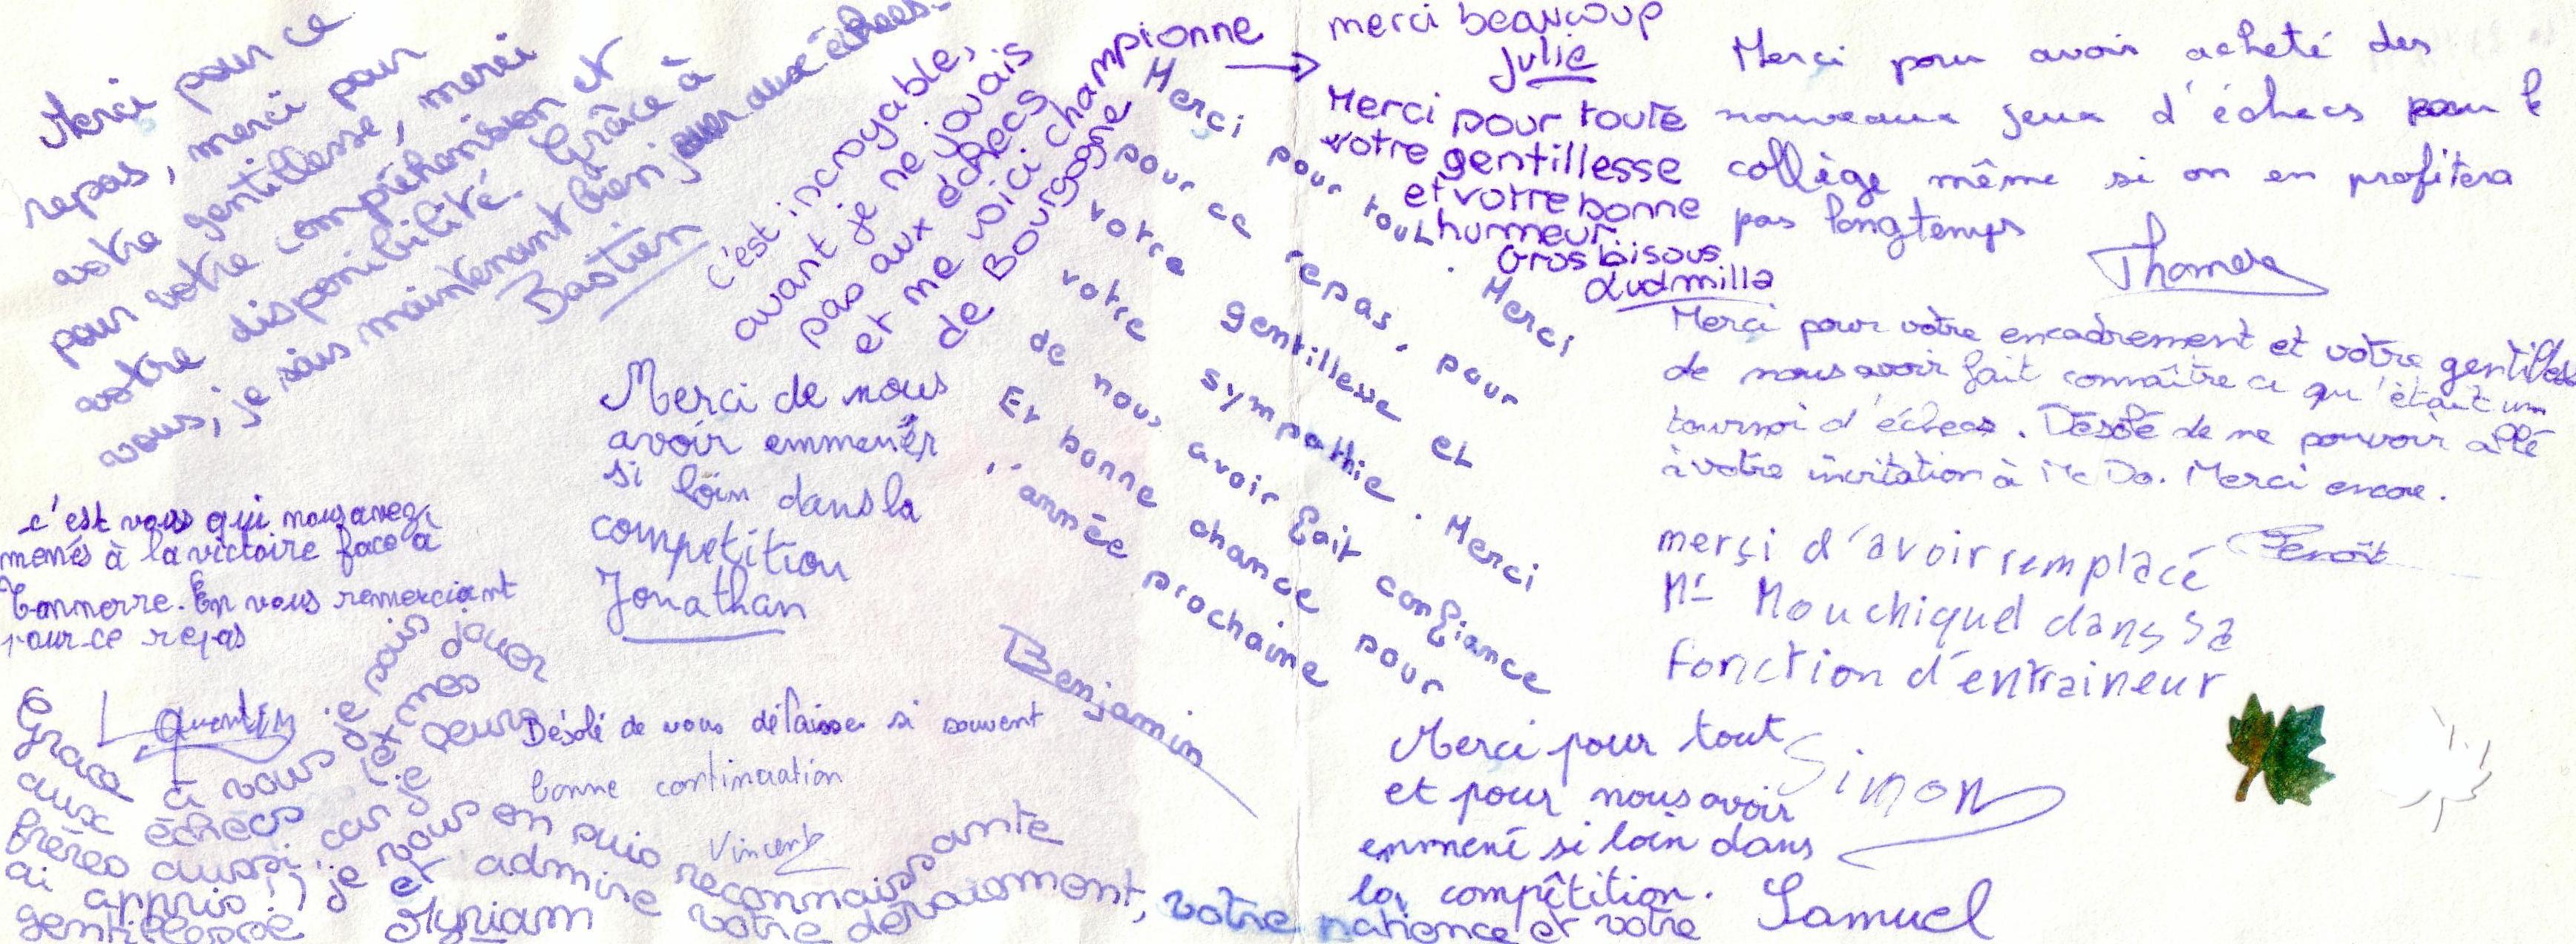 Merci pour ce
repas, merci pour
votre gentillesse, merci
pour votre compréhension et
votre disponibilité. Grâce à
vous, je sais maintenant bien jouer aux échecs.
Bastien
c'est incroyable,
avant je ne jouais
pas aux échecs
et me voici championne
de Bourgogne
→ merci beaucoup
Julie
Merci pour tout. Merci
pour ce repas, pour
votre gentillesse et
votre sympathie. Merci
de nous avoir fait confiance
Et bonne chance pour
l'année prochaine
Benjamin
Merci pour toute
votre gentillesse
et votre bonne
humeur
Gros bisous
Ludmilla
Merci pour avoir acheté des
nouveaux jeux d'échecs pour le
collège même si on en profitera
pas longtemps
Thomas
Merci pour votre encadrement et votre gentilles
de nous avoir fait connaître ce qu'était un
tournoi d'échecs. Désolé de ne pouvoir allé
à votre invitation à Mc Do. Merci encore.
Benoît
merçi d'avoir remplacé
Mr Mouchiquel dans sa
fonction d'entraineur
Simon
Merci de nous
avoir emmenér
si loin dans la
compétition
Jonathan
c'est vous qui nous avez
menés à la victoire face à
Tonnerre. En vous remerciant
pour ce repas
Quentin
Désolé de vous délaisser si souvent
bonne continuation
Vincent
Grace à vous je sais jouer
aux échecs (et mes
frères aussi car je leur
ai appris!) je vous en suis reconnaissante
et admire votre devaisment, votre patience et votre
gentillesse Myriam
Merci pour tout
et pour nous avoir
emmené si loin dans
la compêtition.
Samuel